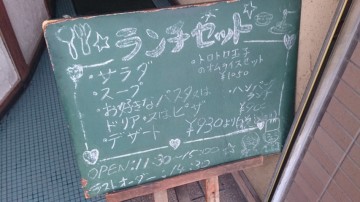 ランチセット
・サラダ
・スープ
・お好きなパスタ又は
ドリア、又はピザ
・デザート
¥930より
・トロトロ玉子
のオムライスセット
¥1050
・ハン
ランチ
OPEN:11:30~15:00
ラストオーダー:14:30